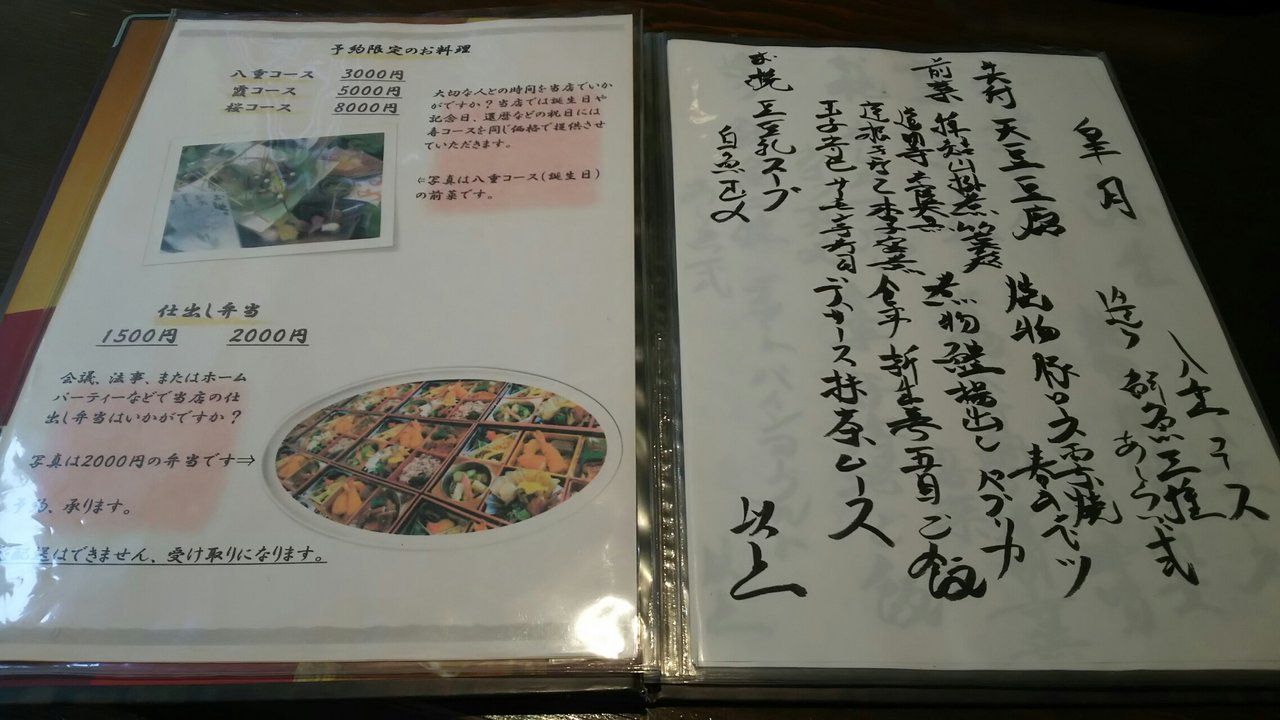 予約限定のお料理
八重コース 3000円
霞コース 5000円
桜コース 8000円
大切な人との時間を当店でいか
がですか？当店では誕生日や
記念日、還暦などの祝日には
各コースを同じ価格で提供させ
ていただきます。
⇐写真は八重コース(誕生日)
の前菜です。
仕出し弁当
1500円 2000円
会議、法事、またはホーム
パーティーなどで当店の仕
出し弁当はいかがですか？
写真は2000円の弁当です⇒
予約、承ります。
はできません、受け取りになります。
八重コース
皐月
鮮魚三種
あしらい一式
先付 天豆豆腐
焼物 豚ロース
キャベツ
前菜
煮物
揚出し パプリカ
食事 新生姜 五目ご飯
デザート 抹茶ムース
お椀 豆乳スープ
白魚
以上